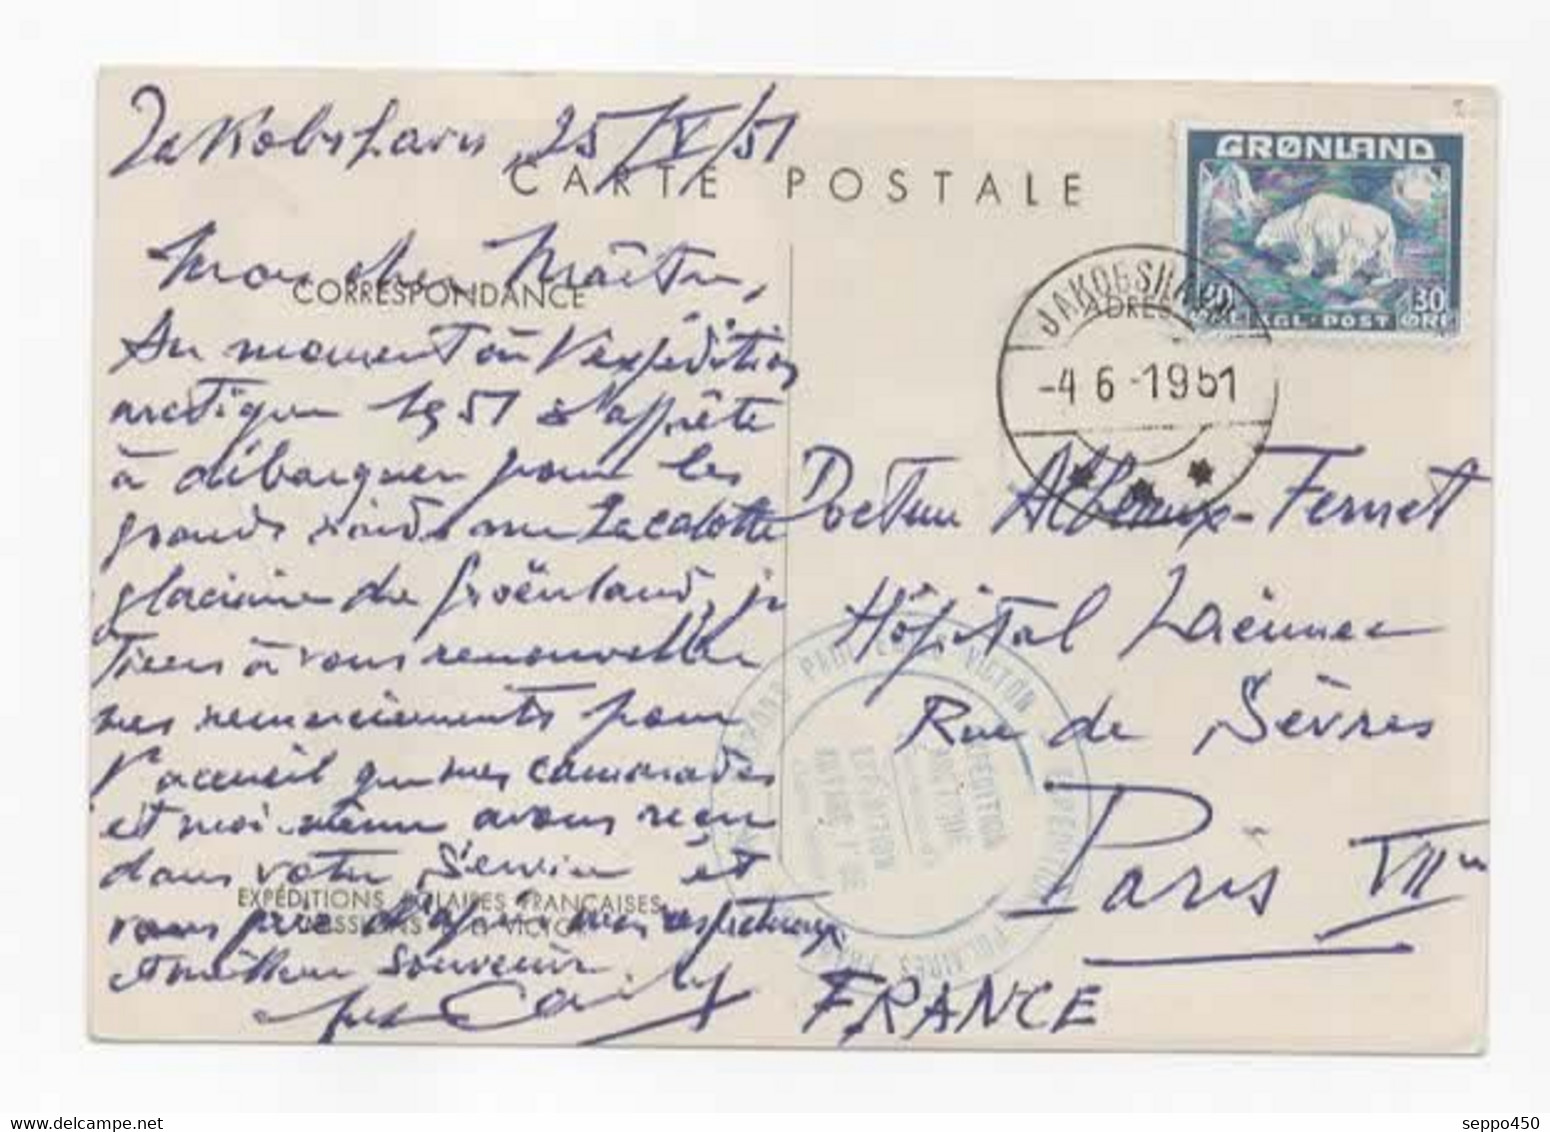 Jakobshavn, 25/V/51
CARTE POSTALE
GRØNLAND
30
ØRE
KGL·POST
30
ØRE
Mon cher Maître,
CORRESPONDANCE
JAKOBSHAVN
ADRES
-4 6 -1951
Au moment où l'expédition
arctique 1951 s'apprête
à débarquer pour les
grands raids sur la calotte
glaciaire du Groënland, je
tiens à vous renouveller
mes remerciements pour
l'accueil que mes camarades
et moi-même avons reçu
dans votre Service et
EXPÉDITIONS POLAIRES FRANÇAISES
MISSIONS P.E. VICTOR
vous prie d'agréer mes respectueux
et meilleurs souvenirs.
Docteur Albeaux-Fernet
Hôpital Laënnec
Rue de Sèvres
Paris VIIe
FRANCE
PAUL EMILE VICTOR
EXPEDITIONS POLAIRES
seppo450